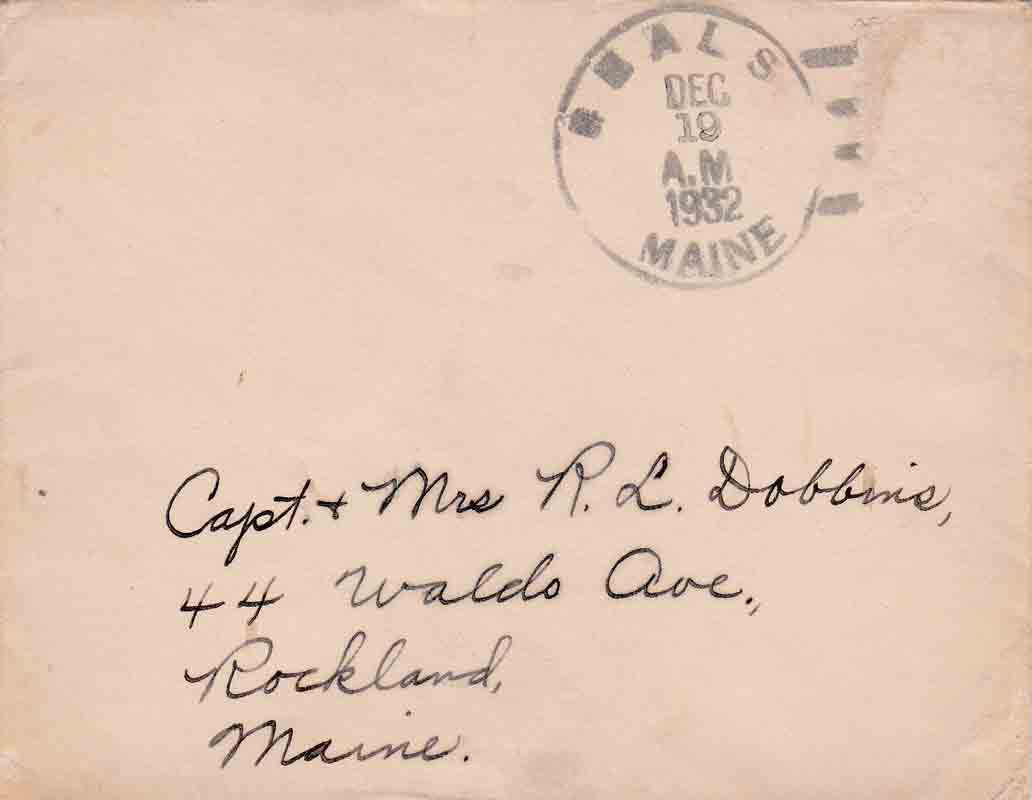 DEC
19
A.M.
1932
MAINE
Capt. + Mrs R. L. Dobbins,
44 Waldo Ave.,
Rockland,
Maine.